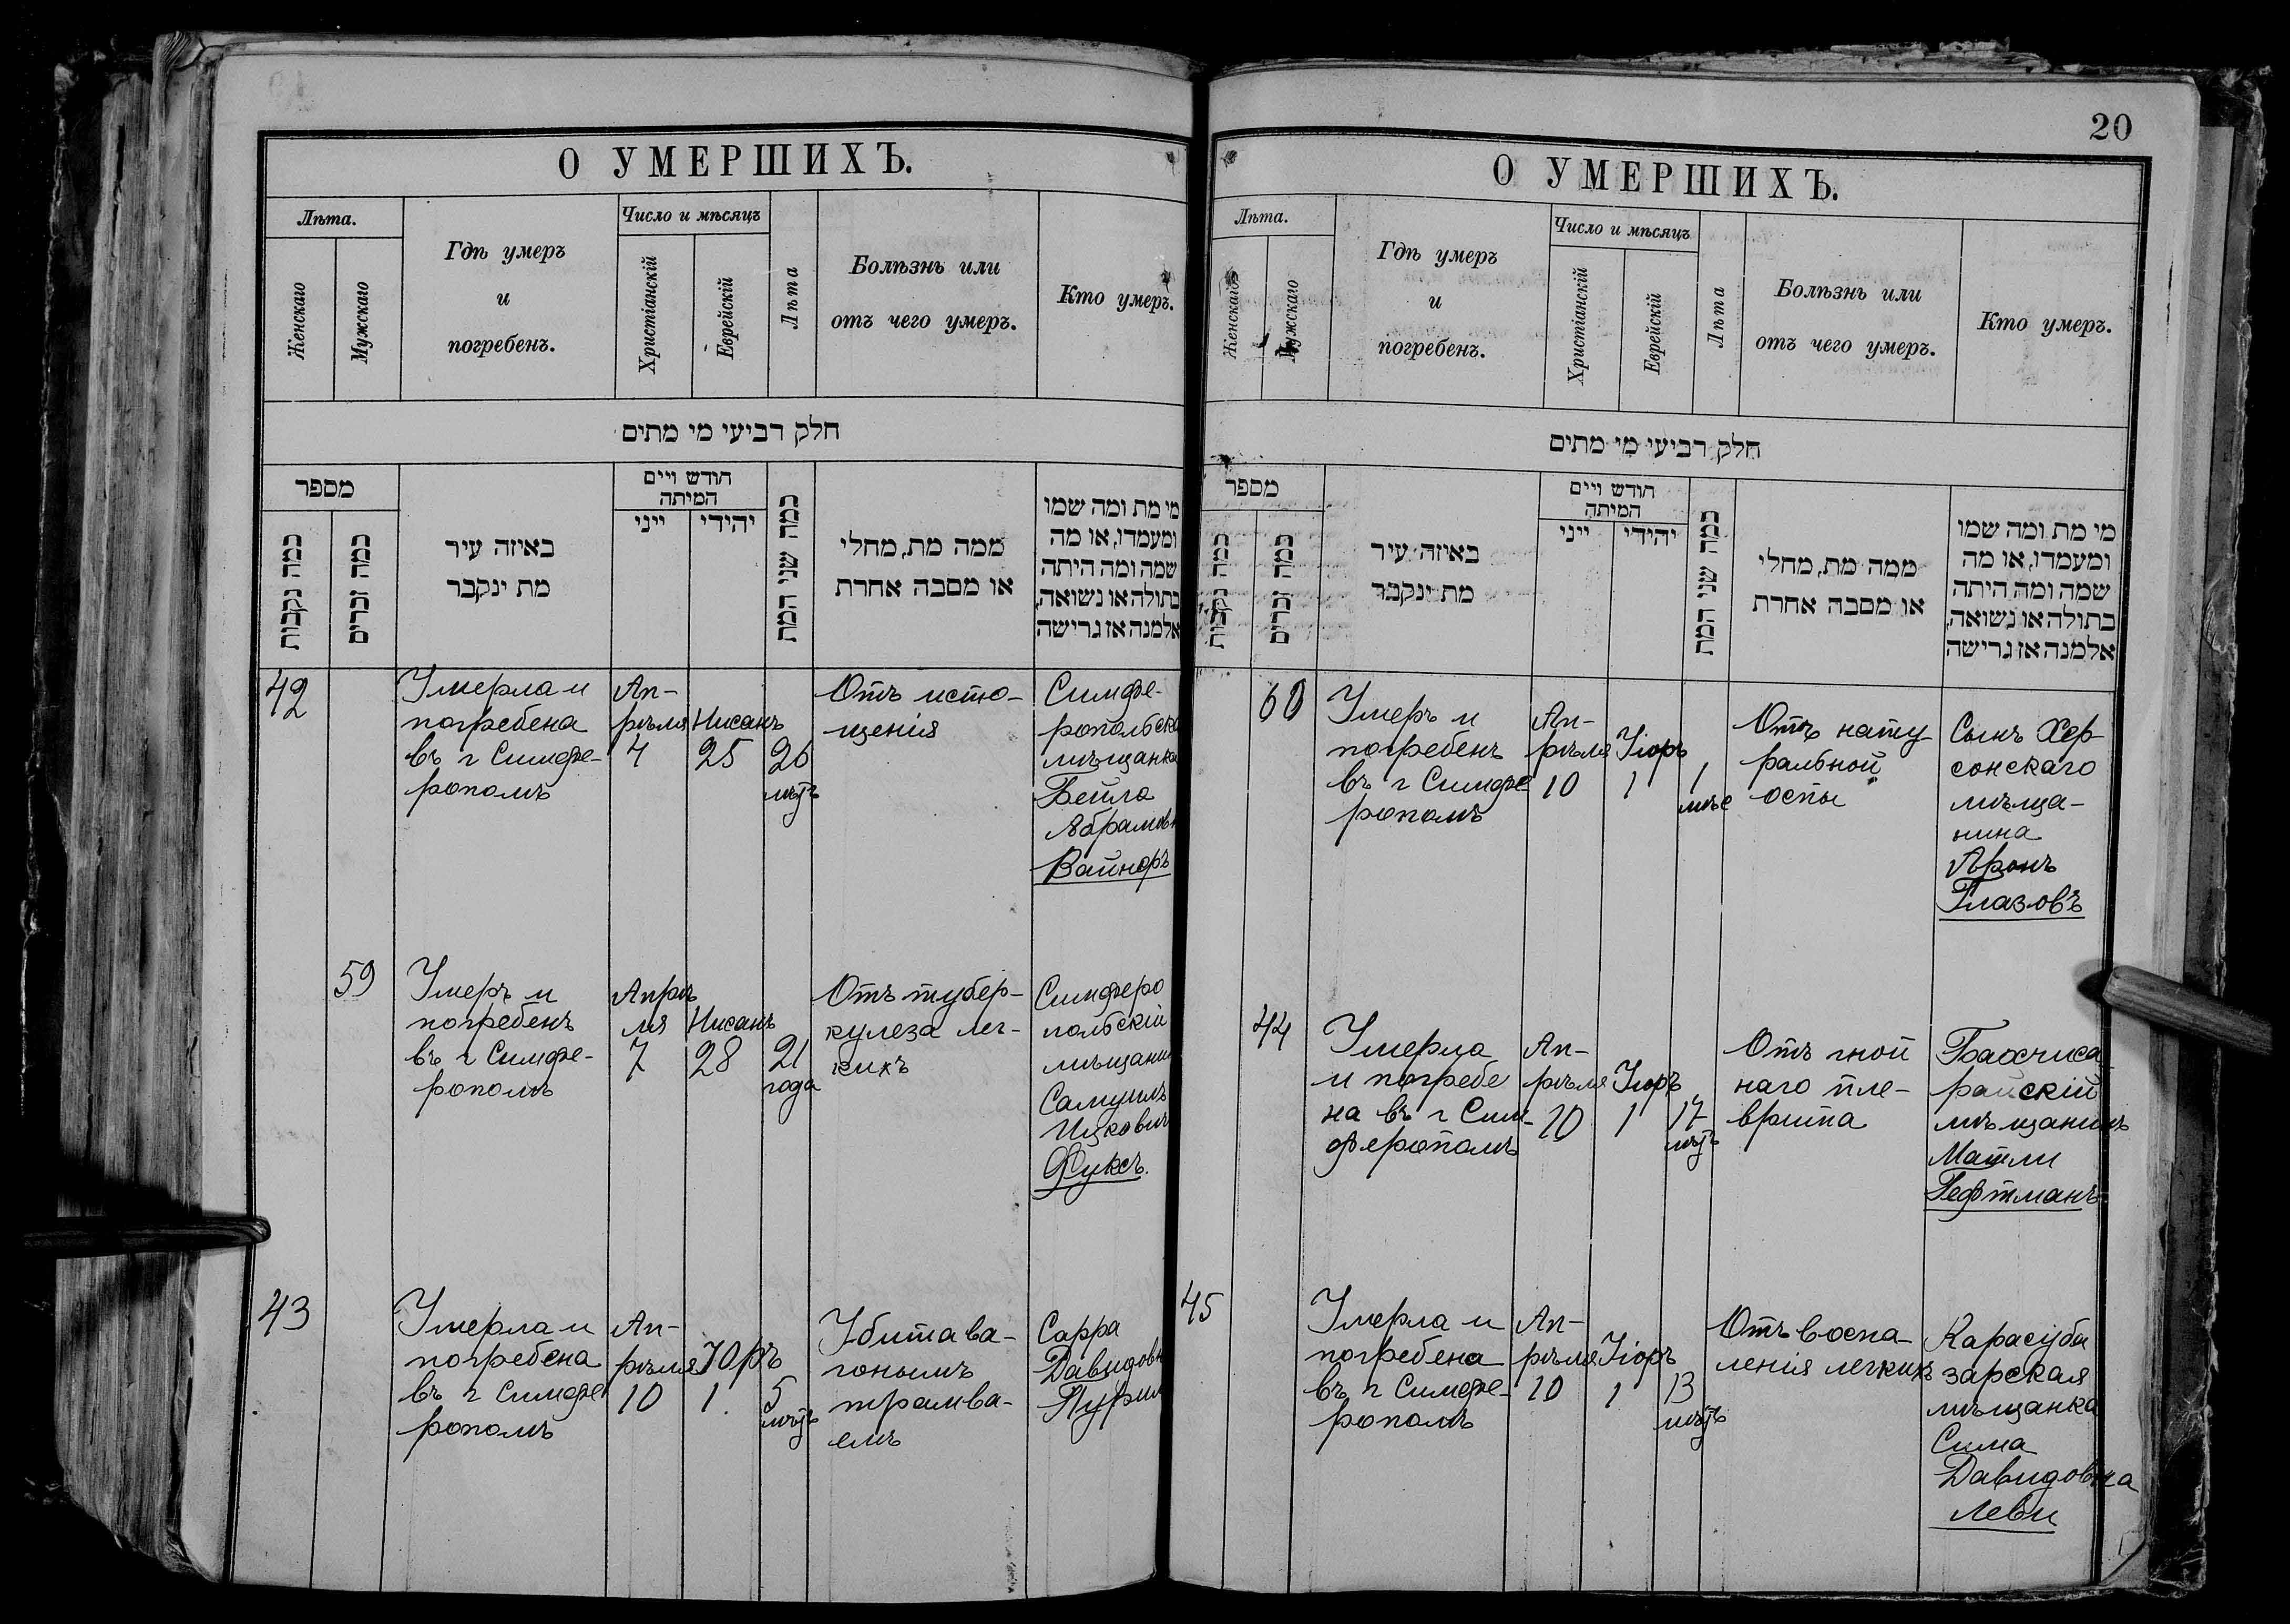 О УМЕРШИХЪ.
Лѣта.
Женскаго
Мужскаго
Гдѣ умеръ
и
погребенъ.
Число и мѣсяцъ
Христіанскій
Еврейскій
Лѣта
Болѣзнь или
отъ чего умеръ.
Кто умеръ.
חלק רביעי מי מתים
מספר
כמה נקבות
כמה זכרים
באיזה עיר
מת ינקבר
חודש ויים
המיתה
ייני
יהודי
כמה שני המת
ממה מת, מחלי
או מסבה אחרת
מי מת ומה שמו
ומעמדו, או מה
שמה ומה היתה
בתולה או נשואה,
אלמנה אז גרישה
42
Умерла и
погребена
въ г Симфе-
рополѣ
Ап-
рѣля
4
Нисанъ
25
26
Отъ исто-
щенія
Симфе-
ропольска
мѣщанка
Бейла
Абрамовн
Вайнеръ
59
Умеръ и
погребенъ
въ г Симфе-
рополѣ
Апрѣ
ля
7
Нисанъ
28
21
года
Отъ тубер-
кулеза лег-
кихъ
Симферо
польскій
мѣщанин
Самуилъ
Ицкович
Фуксъ.
43
Умерла и
погребена
въ г Симфе
рополѣ
Ап-
рѣля
10
Іюръ
1
5
Убита ва-
гонымъ
трамва-
емъ
Сарра
Давидовн
Пурим
20
О УМЕРШИХЪ.
Лѣта.
Женскаго
Мужскаго
Гдѣ умеръ
и
погребенъ.
Число и мѣсяцъ
Христіанскій
Еврейскій
Лѣта
Болѣзнь или
отъ чего умеръ.
Кто умеръ.
חלק רביעי מי מתים
מספר
כמה נקבות
כמה זכרים
באיזה עיר
מת ינקבר
חודש ויים
המיתה
ייני
יהודי
כמה שני המת
ממה מת, מחלי
או מסבה אחרת
מי מת ומה שמו
ומעמדו, או מה
שמה ומה היתה
בתולה או נשואה,
אלמנה אז גרישה
60
Умеръ и
погребенъ
въ г Симфе
рополѣ
Ап-
рѣля
10
Іюръ
1
1
мѣс
Отъ нату
ральной
оспы
Сынъ Хер
сонскаго
мѣща-
нина
Аронъ
Глазовъ
44
Умерла
и погребе
на въ г Сим-
ферополѣ
Ап-
рѣля
10
Іюръ
1
17
Отъ гной
наго пле-
врита
Бахчиса
райскій
мѣщанинъ
Матли
Гефтманъ
45
Умерла и
погребена
въ г Симфе-
рополѣ
Ап-
рѣля
10
Іюръ
1
13
Отъ воспа
ленія легкихъ
Карасуба
зарская
мѣщанка
Сима
Давидовна
Леви